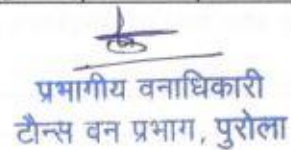 प्रभागीय वनाधिकारी
टौन्स वन प्रभाग, पुरोला